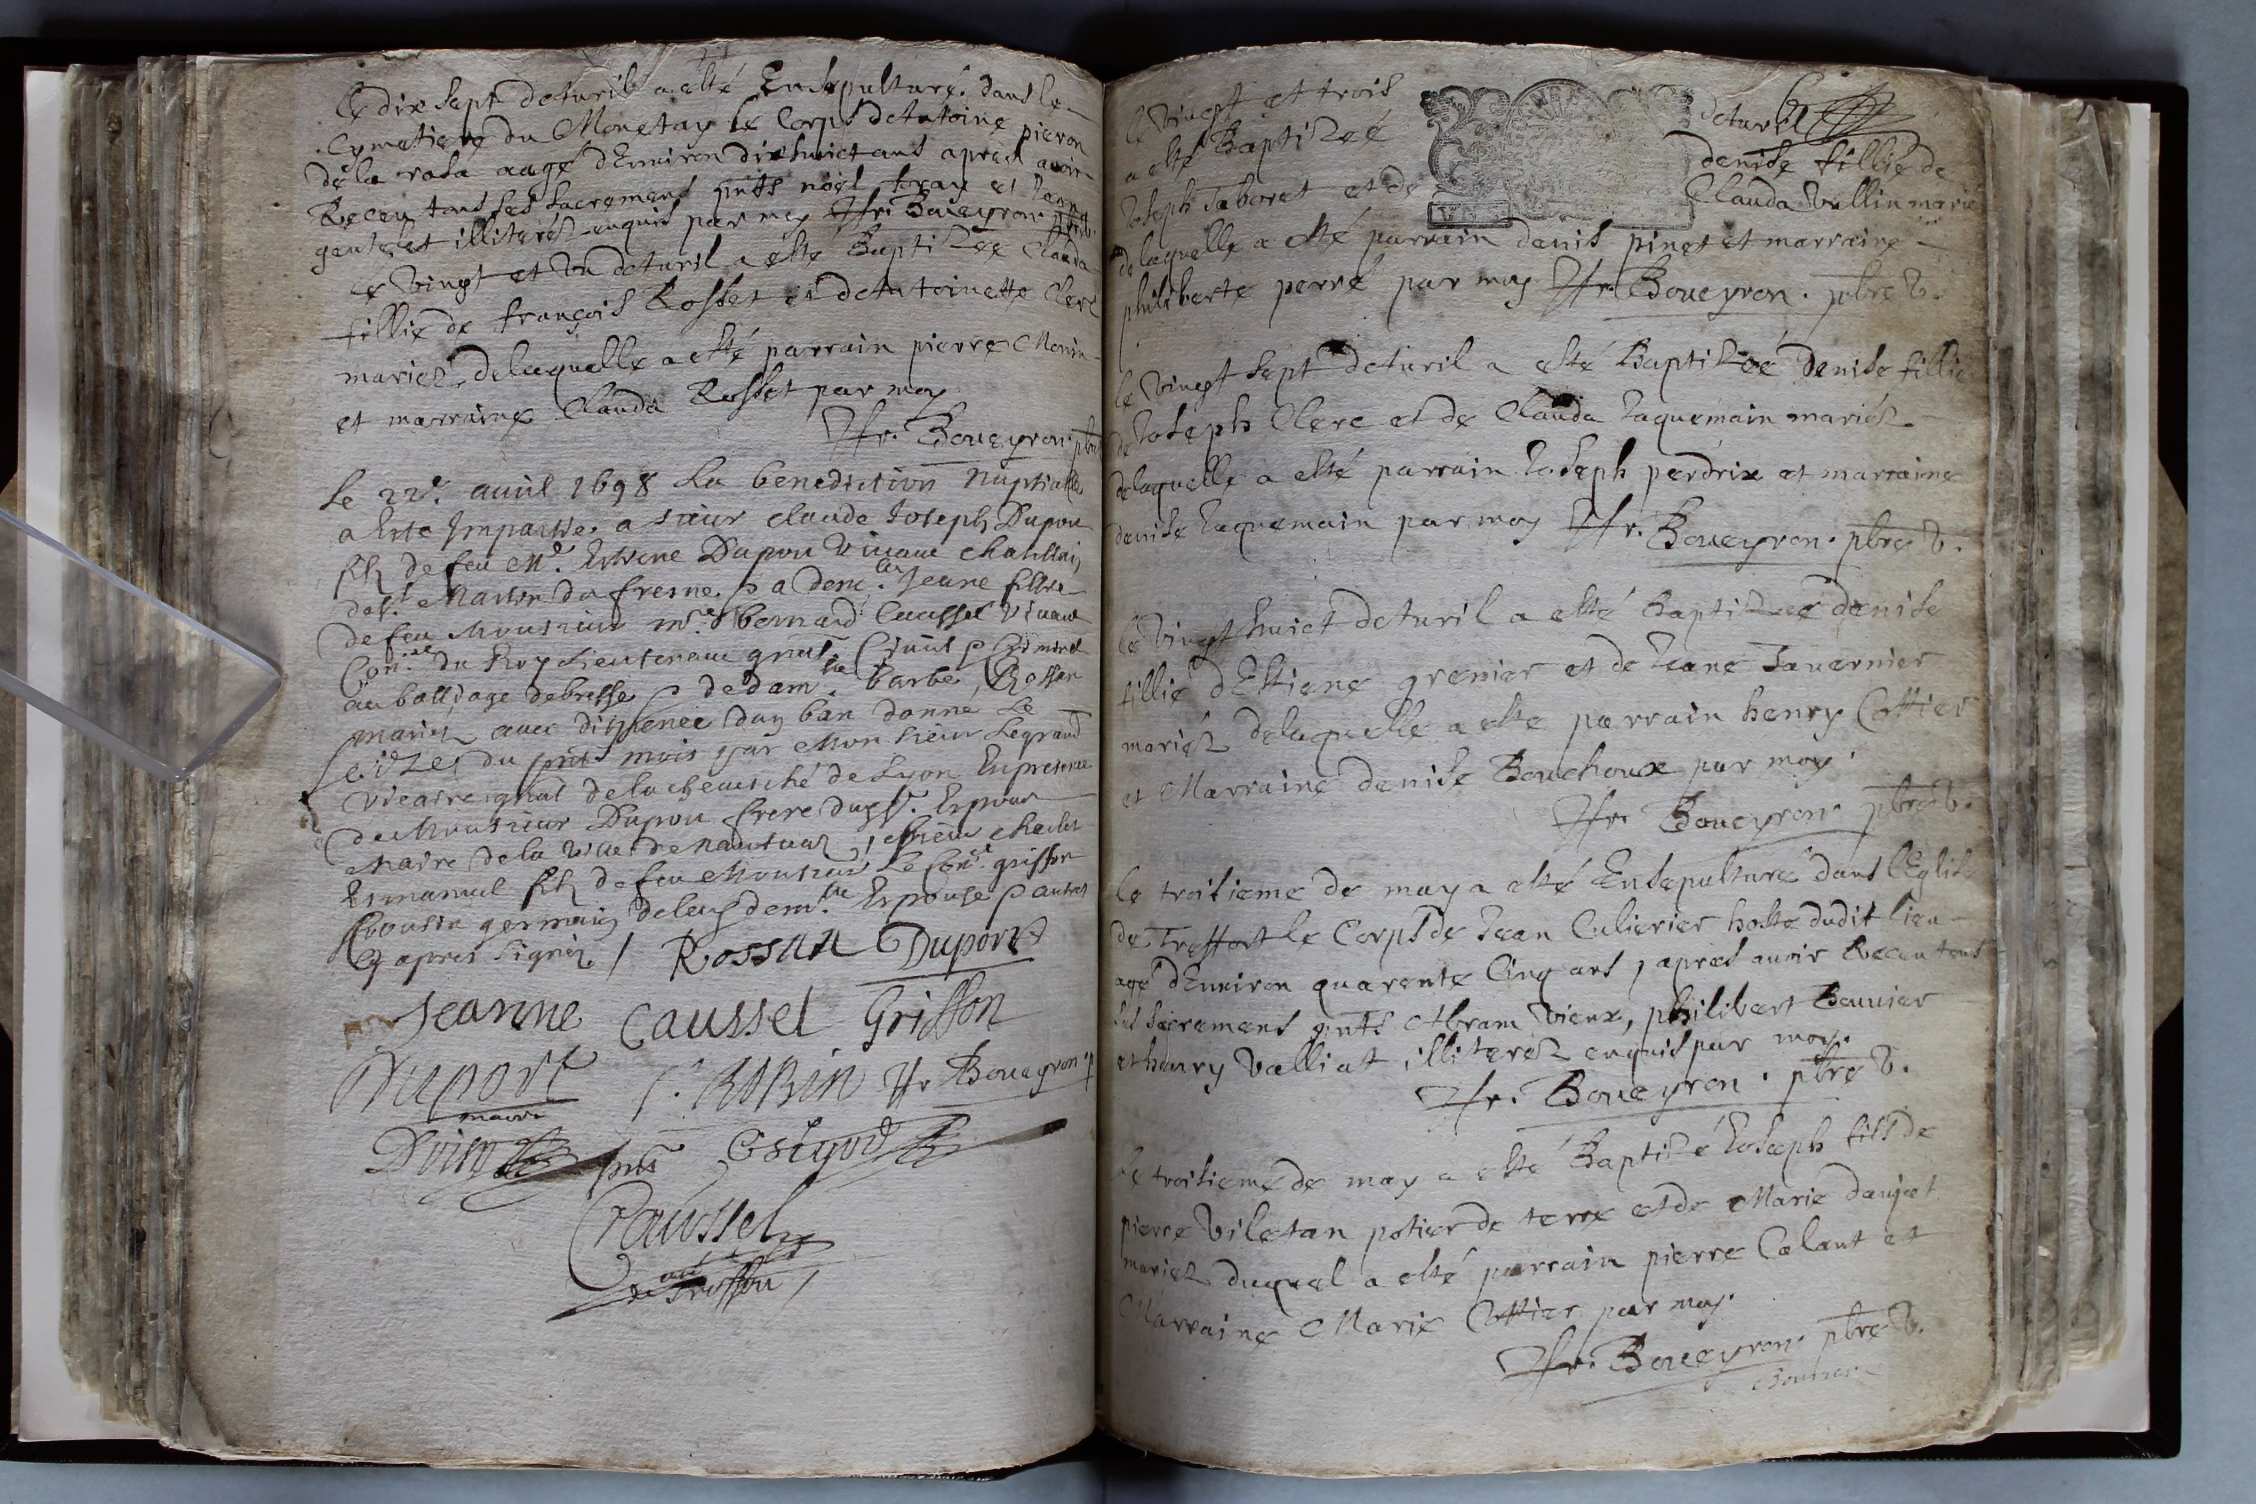 Le dix sept d'avril a esté Ensepulturé dans le
Cymetiere du Monetay le Corps d'Antoine pieron
de la rasa aagé d'Environ dix huict ans apres avoir
Receu tous ses sacremens pnts noël foray et
gentelet illiterés enquis par moy Fr. Boueyron pbre v.
Le Vingt et Un d'avril a esté Baptizée Clauda
fillie de françois Rosset et d'Antoinette Clerc
mariez, de laquelle a esté parrain pierre Monin
et marraine Clauda Rosset par moy
Fr. Boueyron pbre
Le 22e. auril 1698 La benediction Nuptialle
a Este Impartie a sieur Claude Joseph Dupon
filz de feu Mr. Estiene Dupon Vivant Chatellain
de St. Martin du fresne & a demlle. Jeane fillie
de feu Monsieur mre. bernard Caussel Vivant
Conr. du Roy Lieutenant gnal. Civil & Criminel
au bailliage de bresse & de damlle barbe Rossan
mariez avec dispence d'un ban donné Le
seize du pnt mois par Monsieur Legrand
Vicaire gnal de l'archeuesché de Lyon En presence
de Monsieur Dupon frere dudt Sr. Espoux
Maire de la Ville de Nantua, & sieur Charles
Emanuel filz de feu Monsieur Le Conr. grisson
Cousin germain de lad. demlle Espouse & autres
Cy apres signez / Rossan Duport
Jeanne Caussel Grisson
Duport J. Robin Fr Boueyron p
maire
pnt
Caussel
curé
de Treffort /
Le Vingt et trois d'avril 6
a esté Baptizée denise fillie de
Joseph Taboret et de Clauda Vullin mariez
de laquelle a esté parrain denis pinet et marraine
philiberte perré par moy Fr. Boueyron. pbre v.
Le vingt sept d'avril a esté Baptizée denise fillie
de Joseph Clerc et de Clauda Jaquemain mariés
de laquelle a esté parrain Joseph perdrix et marraine
denise Jaquemain par moy Fr. Boueyron. pbre v.
Le vingt huict d'avril a esté Baptizée denise
fillie d'Estiene grenier et de Jeane Tavernier
mariez de laquelle a esté parrain henry Cottier
et Marraine denise Bouchoux par moy.
Fr. Boueyron. pbre v.
Le troisieme de may a esté Ensepulturé dans l'Eglise
de Treffort le Corps de Jean Culierier hoste dudit lieu
agé d'Environ quarente Cinq ans, apres avoir Receu tous
ses sacremens pnts Abram Vieux, philibert Bouvier
et henry Valliat illiterez enquis par moy.
Fr. Boueyron. pbre v.
Le troisieme de may a esté Baptizé Joseph fils de
pierre Viletan potier de terre et de Marie daujat
mariez duquel a esté parrain pierre Calant et
Marraine Marie Cottier par moy.
Fr. Boueyron. pbre v.